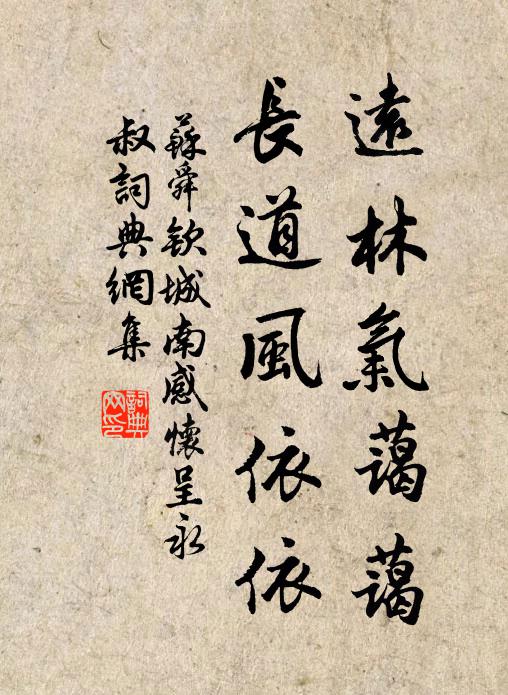 遠林氣藹藹
長道風依依
蘇舜欽城南感懷呈永
叔詞典網集
詞典
网印